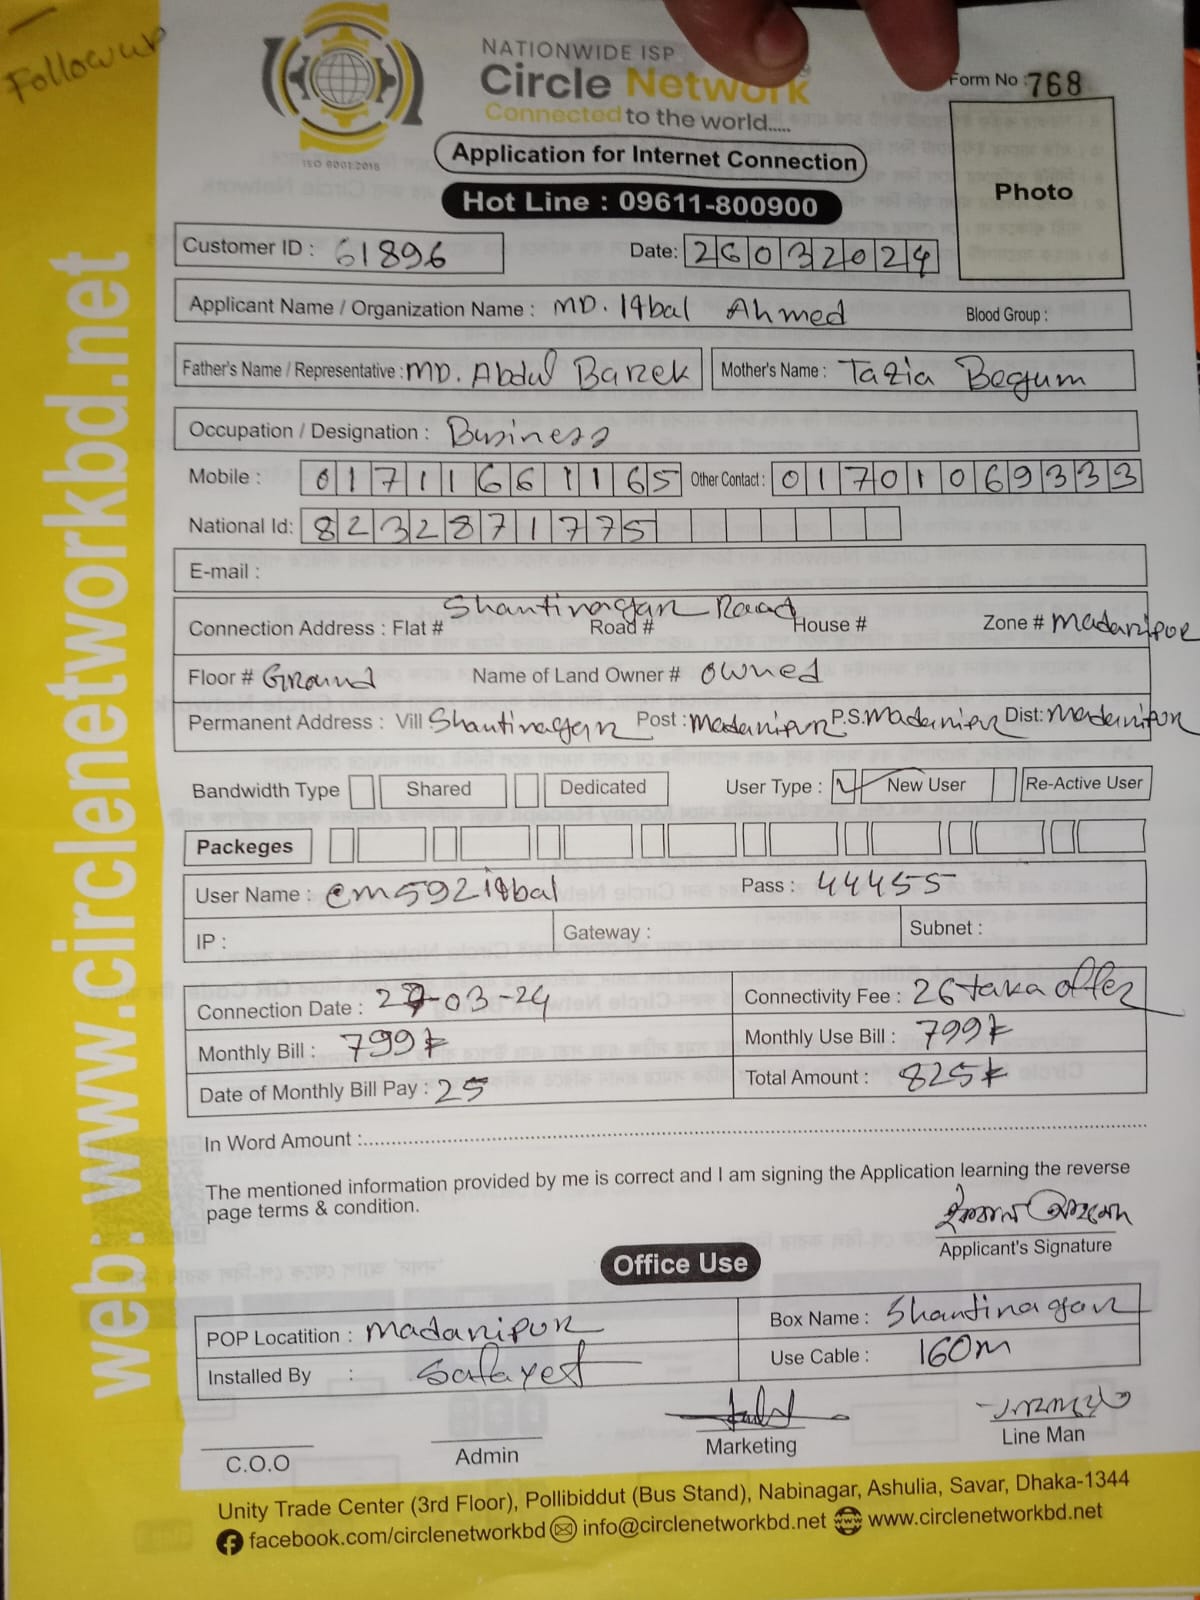 Followup
NATIONWIDE ISP
Circle Network
Connected to the world.....
ISO 9001:2015
Form No : 768
Application for Internet Connection
Hot Line : 09611-800900
Photo
Customer ID : 61896
Date: 26032024
Applicant Name / Organization Name : MD. Iqbal Ahmed Blood Group :
Father's Name / Representative : MD. Abdul Barek Mother's Name : Tazia Begum
Occupation / Designation : Business
Mobile : 01711661165 Other Contact : 01701069333
National Id: 8232871775
E-mail :
Connection Address : Flat # Shantinagar Road Road # House # Zone # Madaripor
Floor # Ground Name of Land Owner # owned
Permanent Address : Vill Shantinagar Post : Madaripur P.S. Madaripur Dist: Madaripur
Bandwidth Type Shared Dedicated User Type : ✓ New User Re-Active User
Packeges
User Name : cm592iqbal Pass : 44455
IP : Gateway : Subnet :
Connection Date : 27-03-24 Connectivity Fee : 26 taka offer
Monthly Bill : 799৳ Monthly Use Bill : 799৳
Date of Monthly Bill Pay : 25 Total Amount : 825৳
In Word Amount :
The mentioned information provided by me is correct and I am signing the Application learning the reverse
page terms & condition.
ইকবাল আহমেদ
Applicant's Signature
Office Use
POP Locatition : Madaripur Box Name : Shantinagar
Installed By : Safayet Use Cable : 160m
C.O.O Admin Marketing Line Man
Unity Trade Center (3rd Floor), Pollibiddut (Bus Stand), Nabinagar, Ashulia, Savar, Dhaka-1344
facebook.com/circlenetworkbd info@circlenetworkbd.net www.circlenetworkbd.net
web: www.circlenetworkbd.net